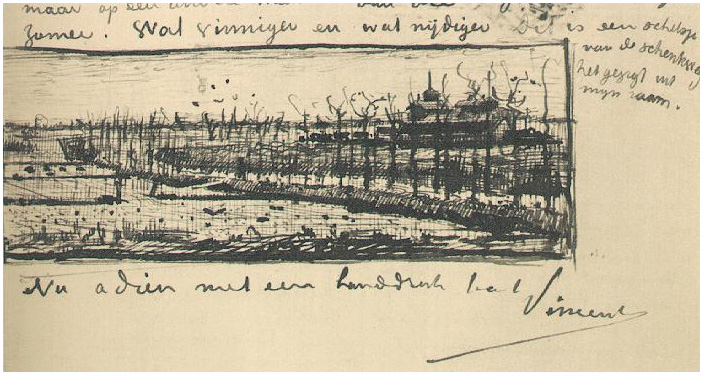 maar op een
zomer. Wat vinniger en wat nijdiger Dit is een schetsje
van de schenkweg
het gezigt uit
mijn raam.
Nu adieu met een handdruk
Vincent